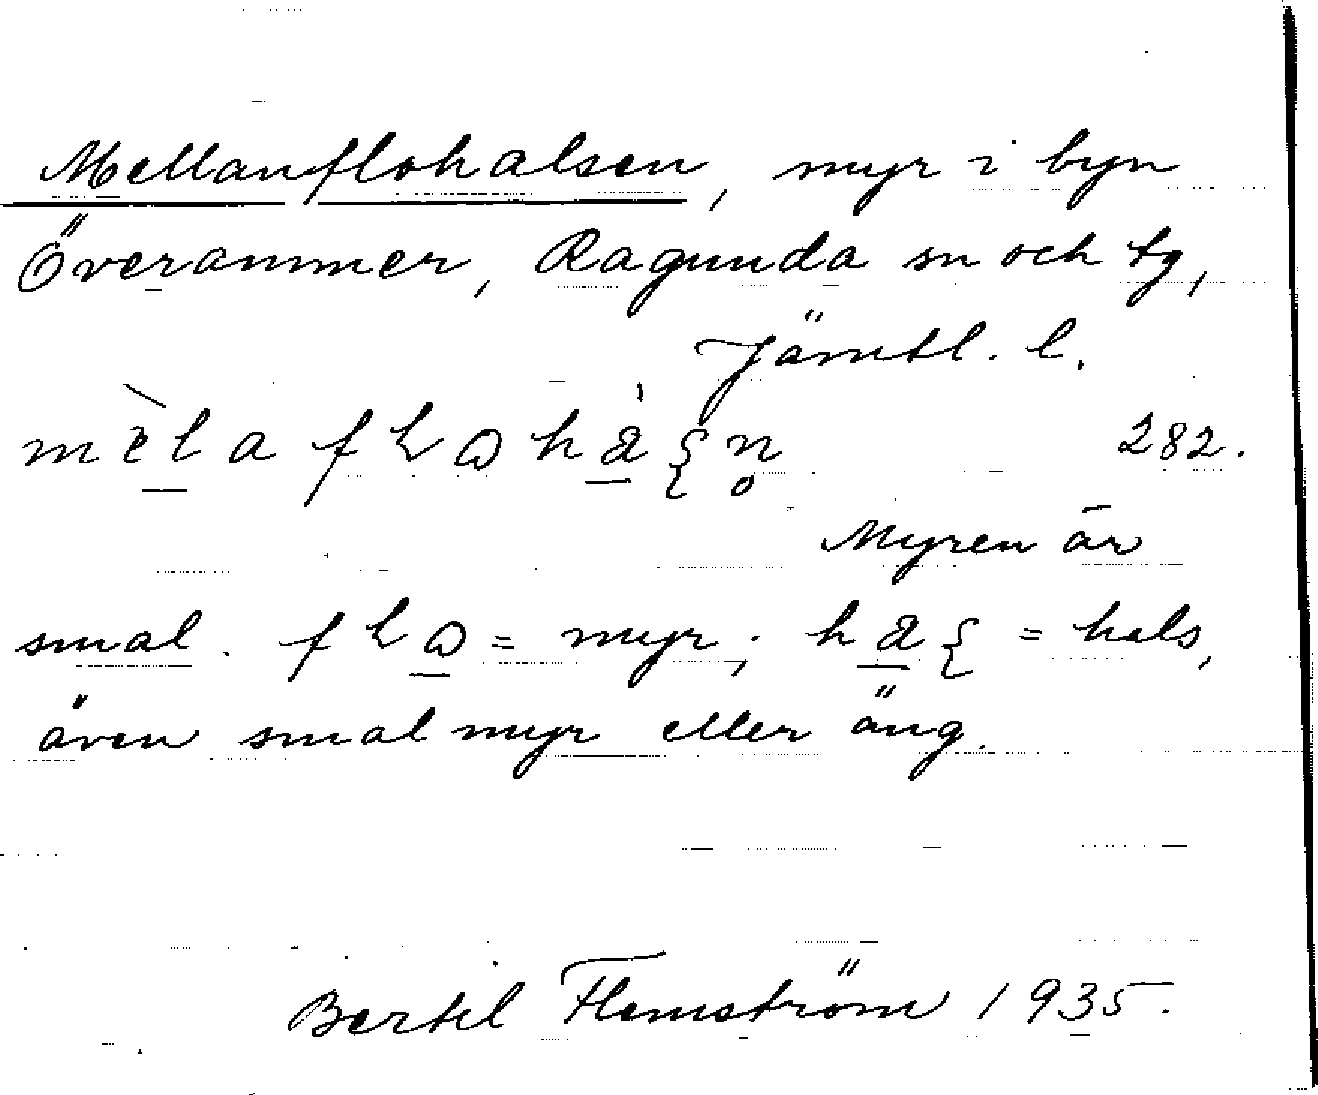 Mellanflohalsen, myr i byn
Överammer, Ragunda sn och tg,
Jämtl. l.
282.
Myren är
smal. = myr; = hals,
även smal myr eller äng.
Bertil Flemström 1935.